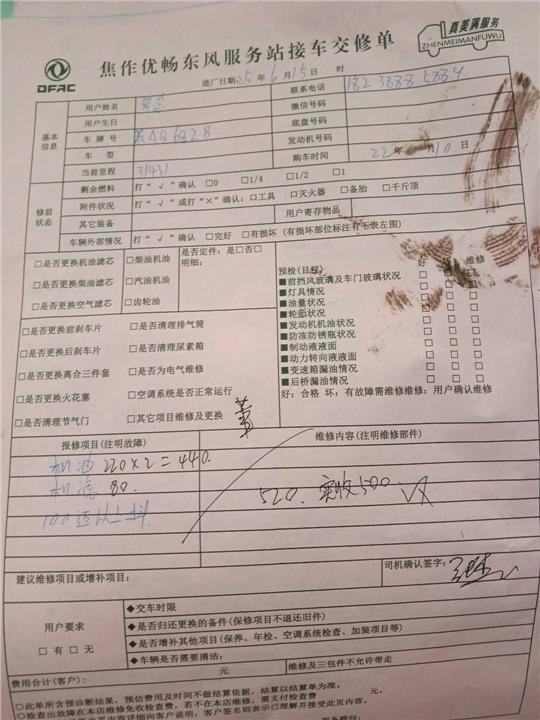 DFAC
焦作优畅东风服务站接车交修单
真美满服务
ZHENMEIMANFUWU
进厂日期:25年6月15日 时
基本信息
用户姓名
联系电话
用户生日
微信号码
车牌号
底盘号码
车型
发动机号码
当前里程 31431
购车时间 22年 10
修前状态
剩余燃料 打“√”确认 □0 □1/4 □1/2 □1
附件状况 打“√”或打“×”确认：□工具 □灭火器 □备胎 □千斤顶
其它装备
用户寄存物品
车辆外部情况 打“√”确认 □完好 □有损坏（有损坏部位标注有下表左图）
□是否更换机油滤芯 □柴油机油
□是否更换柴油滤芯 □汽油机油
□是否更换空气滤芯 □齿轮油
是否定件：是□否□
明细：
□是否更换前刹车片 □是否清理排气筒
□是否更换后刹车片 □是否清理尿素箱
□是否更换离合三件套 □是否为电气维修
□是否更换火花塞 □空调系统是否正常运行
□是否清理节气门 □其它项目维修及更换
预检(目视) 好 维修
■前挡风玻璃及车门玻璃状况
■灯具情况
■油量状况
■轮胎状况
■发动机机油状况
■防冻防锈瓶状况
■制动液液面
■动力转向液液面
■变速箱漏油情况
■后桥漏油情况
好：合格 坏：有故障需维修维修：用户确认维修
报修项目(注明故障)
维修内容(注明维修部件)
机油 220×2=440.
机滤 80.
100迈以上抖.
520. 实收500
建议维修项目或增补项目：
司机确认签字：
用户要求
□有 □无
◆交车时限
◆是否归还更换的备件(保修项目不退还旧件)
◆是否增补其他项目(保养、年检、空调系统检查、加装项目等)
◆车辆是否需要清洁：
费用合计(客户)： 元
维修及三包件不允许带走
○此单所含预诊断结果，预估费用及时间不做结算依据，结算以结算单为准。 元
○检查出故障在本店维修免收检查费，若不在本店维修，需支付检查费